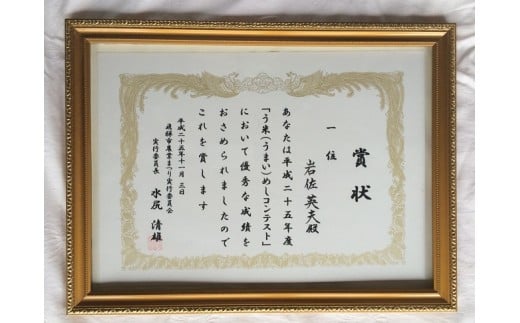 賞状
一位
岩佐英夫殿
あなたは平成二十五年度
「う米(うまい)めしコンテスト」
において優秀な成績を
おさめられましたので
これを賞します
平成二十五年十一月三日
飛騨市農業まつり実行委員会
実行委員長 水尻清雄